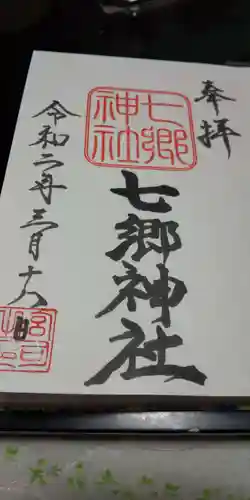 奉拝
七郷
神社
七郷神社
令和二年三月十八日
宮司
之印